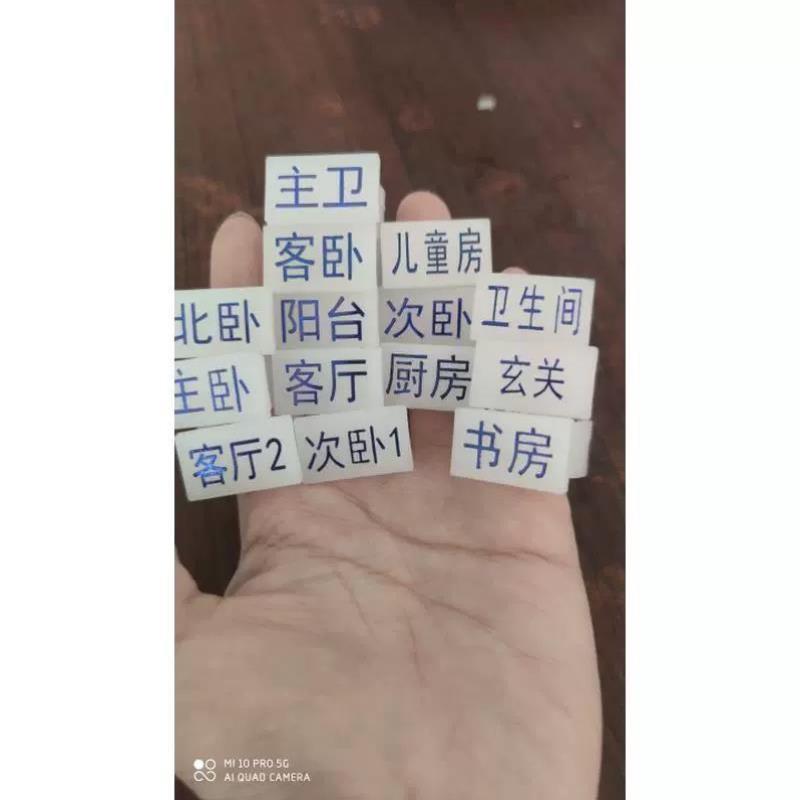 主卫
客卧
儿童房
北卧
阳台
次卧
卫生间
主卧
客厅
厨房
玄关
客厅2
次卧1
书房
MI 10 PRO 5G
AI QUAD CAMERA